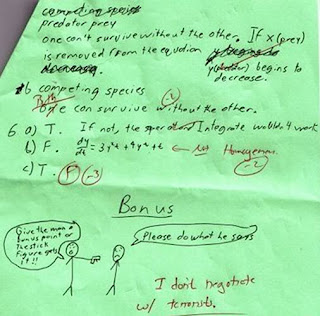 predator prey
one can't survive without the other. If x (prey)
is removed from the equation
y begins to
decrease.
b competing species
Both
can survive without the other.
6 a) T. If not, the Integrate wouldn't work
b) F. dy/dt = 3y² + 4y + 6 ← Not Homogeneous.
-2
c) T. F -3
Bonus
Give the man a
bonus point or
the stick
figure gets
it!!
Please do what he says
I don't negotiate
w/ terrorists.